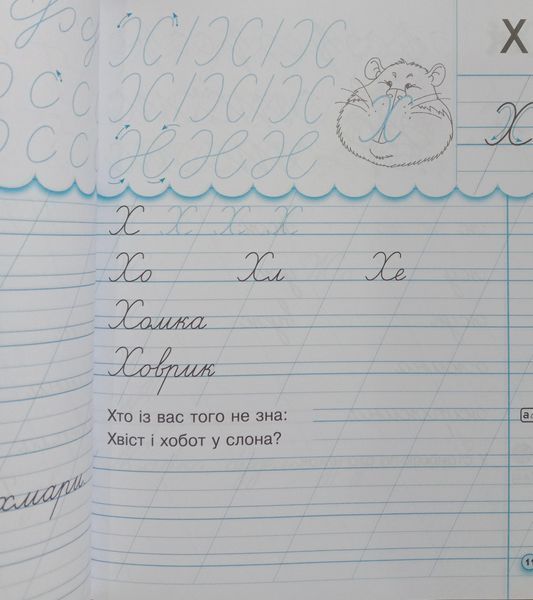 Х
Х
Х Х Х Х
Хо Хл Хе
Хомка
Ховрик
Хто із вас того не зна:
Хвіст і хобот у слона?
хмари